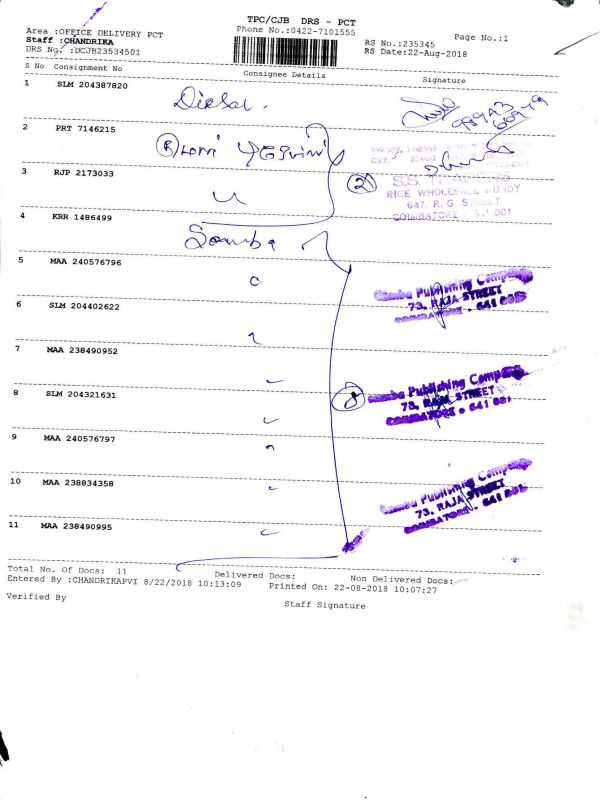 TPC/CJB DRS - PCT
Area :OFFICE DELIVERY PCT
Phone No.:0422-7101555
Page No.:1
Staff :CHANDRIKA
RS No.:235345
DRS No. :DCJB23534501
RS Date:22-Aug-2018
S No Consignment No Consignee Details Signature
1 SLM 204387820
2 PRT 7146215
3 RJP 2173033
S.S.
RICE WHOLESALE MUNDY
647, R. G. STREET
COIMBATORE - 641 001
4 KRR 1486499
5 MAA 240576796
Samba Publishing Company
73, RAJA STREET
COIMBATORE - 641 001
6 SLM 204402622
7 MAA 238490952
8 SLM 204321631
8
Samba Publishing Company
73, RAJA STREET
COIMBATORE - 641 001
9 MAA 240576797
10 MAA 238834358
Samba Publishing Company
73, RAJA STREET
COIMBATORE - 641 001
11 MAA 238490995
Total No. Of Docs: 11 Delivered Docs: Non Delivered Docs:
Entered By :CHANDRIKAPVI 8/22/2018 10:13:09 Printed On: 22-08-2018 10:07:27
Verified By Staff Signature